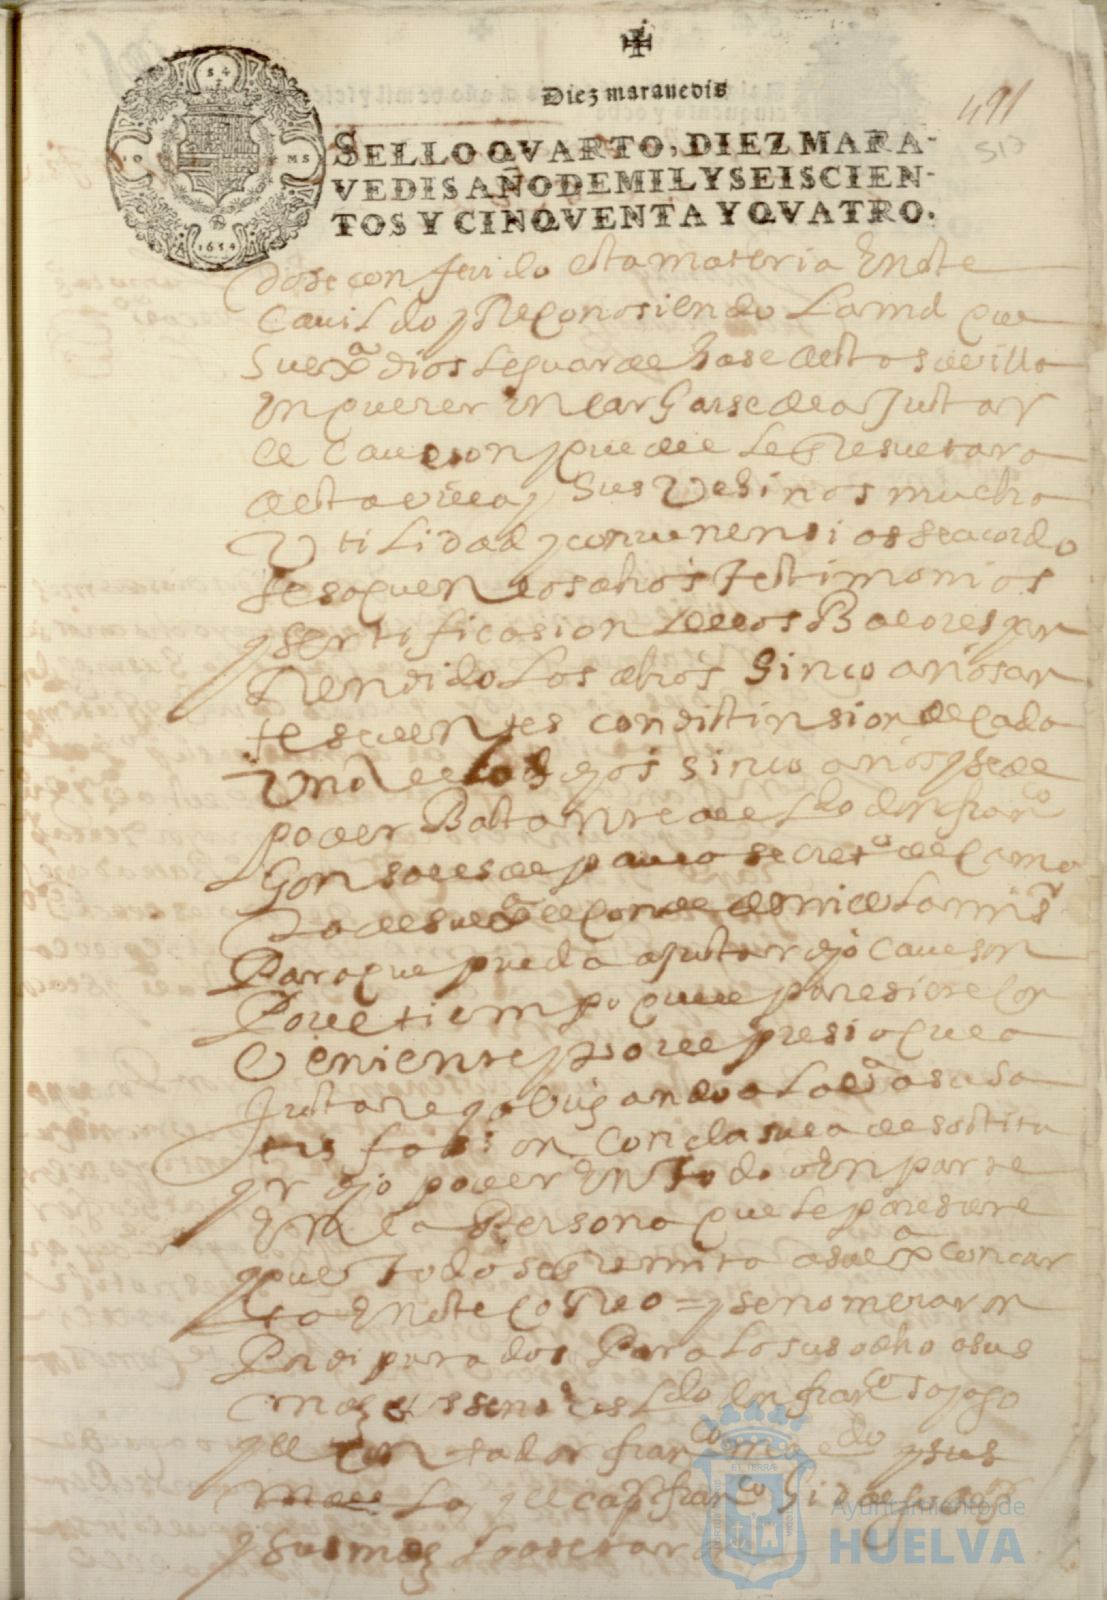 491
517
Diez marauedis
SELLO QVARTO, DIEZ MARA-
VEDIS AÑO DE MIL Y SEISCIEN-
TOS Y CINQVENTA Y QVATRO.
1654
dose conferido esta materia En este
Cauildo y Reconosiendo La md que
Su exa dios le guarde hase a esta su villa
En querer Encargarse de ajustar
el Caueson y que de el le Resultara
a esta villa y sus Vesinos mucha
Vtilidad y conuenensia se acordo
se saquen los dhos testimonios
y Sertificasion de los Balores
Rendido Los dhos Sinco años an
tesedentes con distinsion de cada
Vno de los dhos sinco años y se de
poder Bastante al Ldo don franco
Gonsales de secreto de Cama
Ra de su exa el conde
Para que pueda ajustar dho Caueson
Por el tiempo que le paresiere Con
Veniente y por el presio que a
Justare obligando a la a su sa
tisfasion Con clausula de sostitu
yr dho poder En Todo o En parte
En la Persona que le paresiere
y que Todo se Remita a su exa con car
ta En este Correo = y se nomeraron
Por diputados Para Lo susodho a sus
mds Los señores Ldo don franco
y el Contador franco y sus
y el capn franco Gil
y sus mds Lo asetaron
Ayuntamiento de
HUELVA